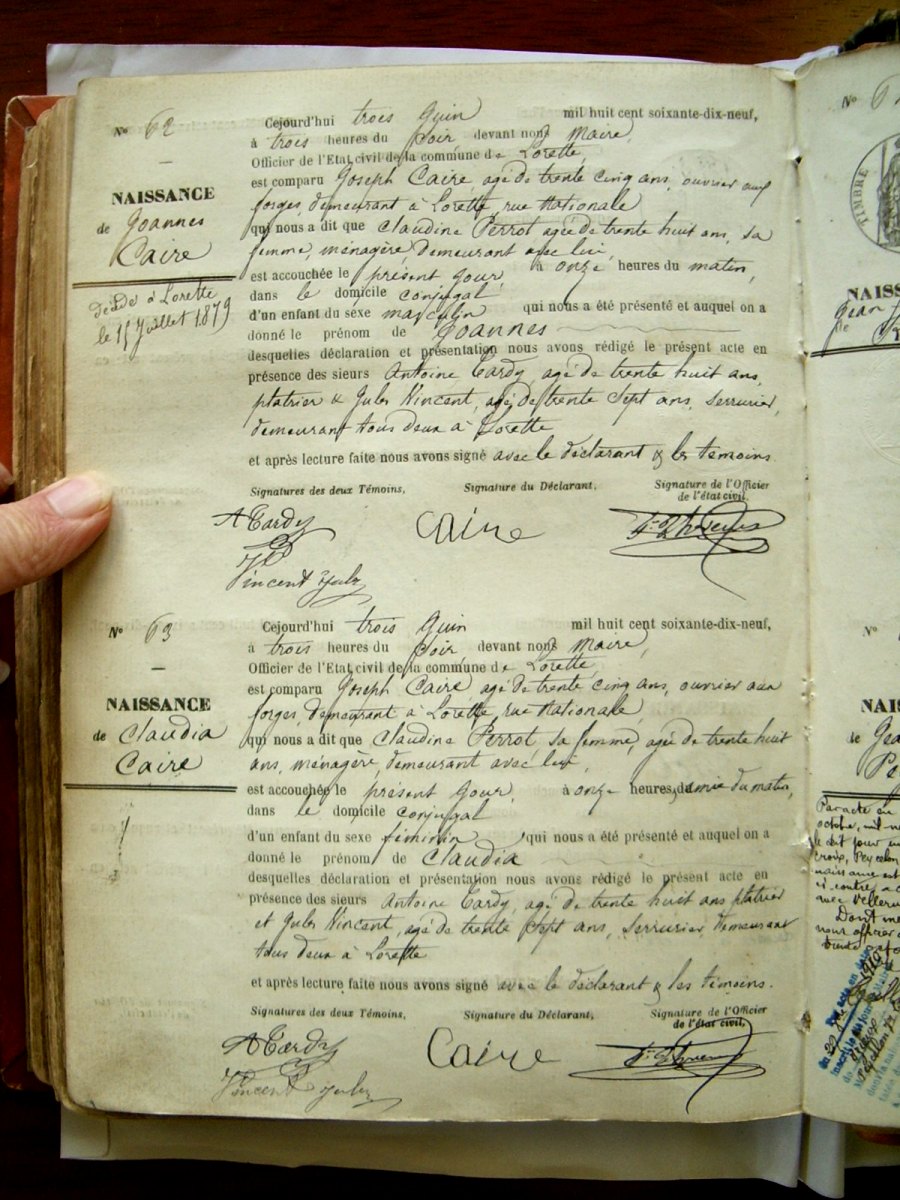 N° 62
NAISSANCE
de Joannes
Caire
décédé à Lorette
le 15 Juillet 1879
Cejourd'hui trois Juin mil huit cent soixante-dix-neuf,
à trois heures du soir devant nous Maire,
Officier de l'Etat civil de la commune de Lorette,
est comparu Joseph Caire, agé de trente cinq ans, ouvrier aux
forges, demeurant à Lorette, rue Nationale
qui nous a dit que Claudine Perrot agée de trente huit ans, sa
femme, ménagère, demeurant avec lui,
est accouchée le présent jour, à onze heures du matin,
dans le domicile conjugal
d'un enfant du sexe masculin qui nous a été présenté et auquel on a
donné le prénom de Joannes
desquelles déclaration et présentation nous avons rédigé le présent acte en
présence des sieurs Antoine Tardy, agé de trente huit ans,
platrier & Jules Vincent, agé de trente sept ans, serrurier,
demeurant tous deux à Lorette
et après lecture faite nous avons signé avec le déclarant & les témoins.
Signatures des deux Témoins, Signature du Déclarant, Signature de l'Officier
de l'état civil,
A Tardy Caire
Vincent Jules
N° 63
NAISSANCE
de Claudia
Caire
Cejourd'hui trois Juin mil huit cent soixante-dix-neuf,
à trois heures du soir devant nous Maire,
Officier de l'Etat civil de la commune de Lorette
est comparu Joseph Caire agé de trente cinq ans, ouvrier aux
forges, demeurant à Lorette, rue Nationale,
qui nous a dit que Claudine Perrot, sa femme, agée de trente huit
ans, ménagère, demeurant avec lui,
est accouchée le présent jour, à onze heures demie du matin,
dans le domicile conjugal
d'un enfant du sexe féminin qui nous a été présenté et auquel on a
donné le prénom de Claudia
desquelles déclaration et présentation nous avons rédigé le présent acte en
présence des sieurs Antoine Tardy, agé de trente huit ans platrier
et Jules Vincent, agé de trente sept ans, serrurier demeurant
tous deux à Lorette
et après lecture faite nous avons signé avec le déclarant & les témoins.
Signatures des deux Témoins, Signature du Déclarant, Signature de l'Officier
de l'état civil,
A Tardy Caire
Vincent Jules
N°
TIMBRE
NAISS
Jean
N°
NAIS
de Jea
Pe